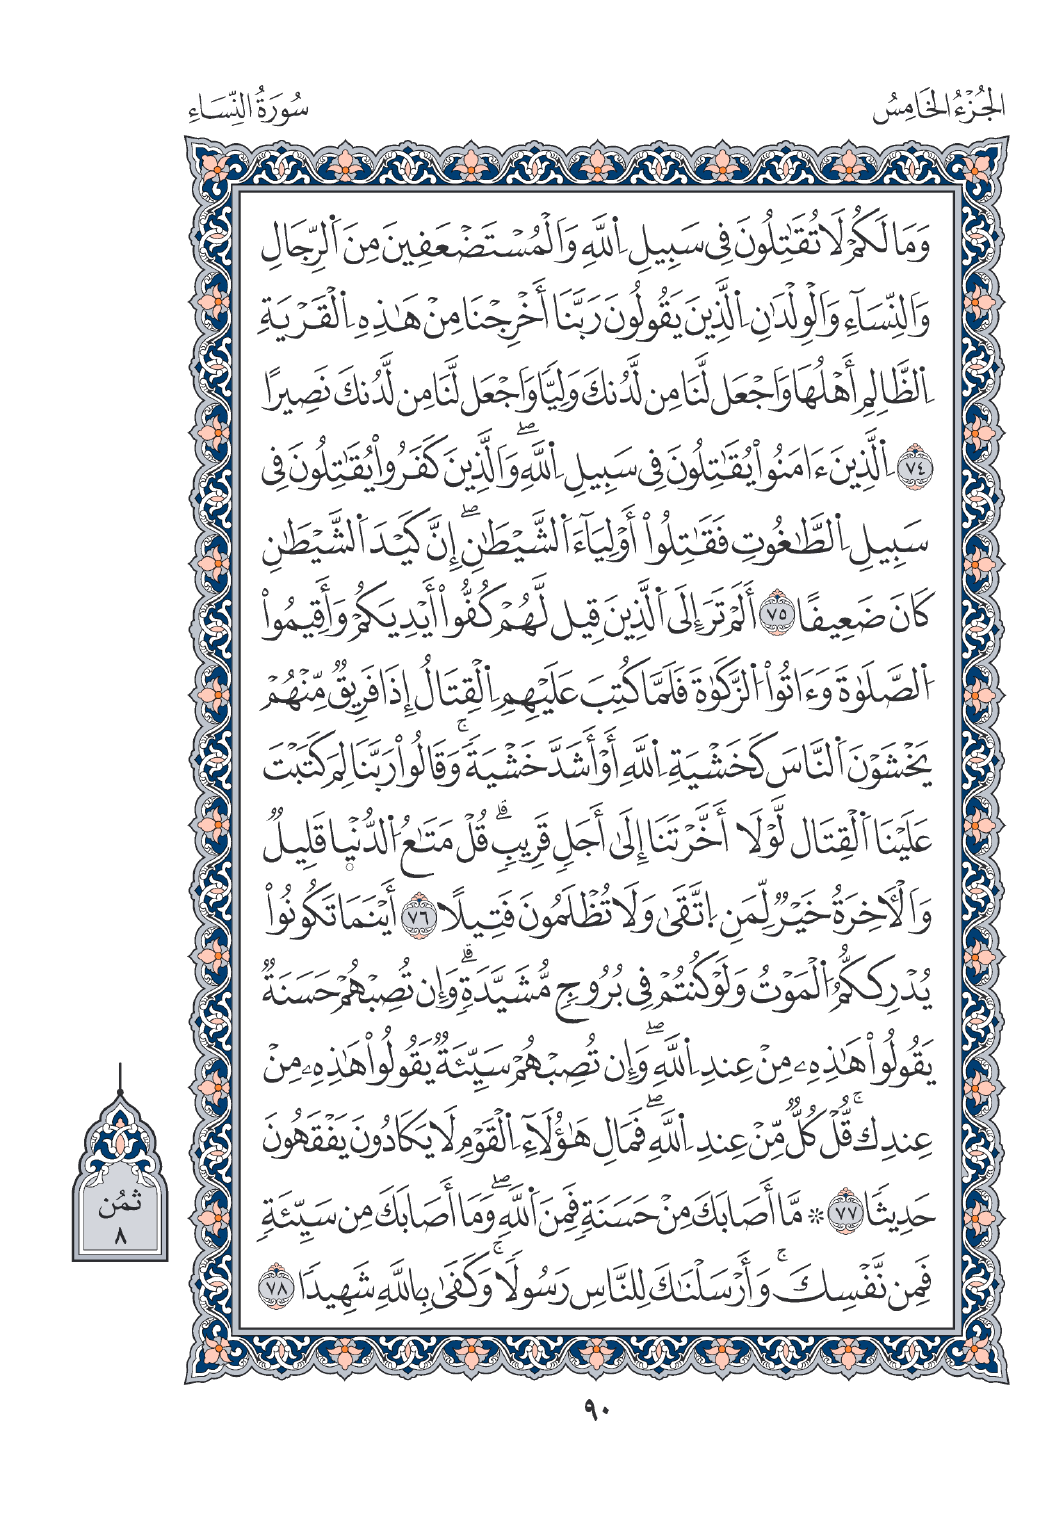 الجُزْءُ الخَامِسُ
سُورَةُ النِّسَاءِ
وَمَا لَكُمْ لَا تُقَٰتِلُونَ فِى سَبِيلِ اِ۬للَّهِ وَالْمُسْتَضْعَفِينَ مِنَ اَ۬لرِّجَالِ
وَالنِّسَآءِ وَالْوِلْدَٰنِ اِ۬لَّذِينَ يَقُولُونَ رَبَّنَا أَخْرِجْنَا مِنْ هَٰذِهِ اِ۬لْقَرْيَةِ
اِ۬لظَّالِمِ أَهْلُهَا وَاَجْعَل لَّنَا مِن لَّدُنكَ وَلِيّٗا وَاَجْعَل لَّنَا مِن لَّدُنكَ نَصِيرًا
٧٤ اِ۬لَّذِينَ ءَامَنُواْ يُقَٰتِلُونَ فِى سَبِيلِ اِ۬للَّهِۖ وَالَّذِينَ كَفَرُواْ يُقَٰتِلُونَ فِى
سَبِيلِ اِ۬لطَّٰغُوتِ فَقَٰتِلُواْ أَوْلِيَآءَ اَ۬لشَّيْطَٰنِۖ إِنَّ كَيْدَ اَ۬لشَّيْطَٰنِ
كَانَ ضَعِيفًا ٧٥ أَلَمْ تَرَ إِلَى اَ۬لَّذِينَ قِيل لَّهُمْ كُفُّواْ أَيْدِيَكُمْ وَأَقِيمُواْ
اُ۬لصَّلَوٰةَ وَءَاتُواْ اُ۬لزَّكَوٰةَ فَلَمَّا كُتِبَ عَلَيْهِمِ اِ۬لْقِتَالُ إِذَا فَرِيقٌ مِّنْهُمْ
يَخْشَوْنَ اَ۬لنَّاسَ كَخَشْيَةِ اِ۬للَّهِ أَوْ أَشَدَّ خَشْيَةًۚ وَقَالُواْ رَبَّنَا لِمَ كَتَبْتَ
عَلَيْنَا اَ۬لْقِتَال لَّوْلَا أَخَّرْتَنَا إِلَى أَجَلٍ قَرِيبٍۗ قُلْ مَتَٰعُ اُ۬لدُّنْيا قَلِيلٌ
وَالْأٓخِرَةُ خَيْرٌ لِّمَنِ اِ۪تَّقَىٰ وَلَا تُظْلَمُونَ فَتِيلًا ٧٦ أَيْنَمَا تَكُونُواْ
يُدْرِككُّمُ اُ۬لْمَوْتُ وَلَوْ كُنتُمْ فِى بُرُوجٍ مُّشَيَّدَةٍۗ وَإِن تُصِبْهُمْ حَسَنَةٌ
يَقُولُواْ هَٰذِهِۦ مِنْ عِندِ اِ۬للَّهِۖ وَإِن تُصِبْهُمْ سَيِّئَةٌ يَقُولُواْ هَٰذِهِۦ مِنْ
عِندِكۚ قُّلْ كُلٌّ مِّنْ عِندِ اِ۬للَّهِۖ فَمَالِ هَٰٓؤُلَآءِ اِ۬لْقَوْمِ لَا يَكَادُونَ يَفْقَهُونَ
حَدِيثًا ٧٧ ۞ مَّا أَصَابَكَ مِنْ حَسَنَةٍ فَمِنَ اَ۬للَّهِۖ وَمَا أَصَابَكَ مِن سَيِّئَةٍ
فَمِن نَّفْسِكَۚ وَأَرْسَلْنَٰكَ لِلنَّاسِ رَسُولًاۚ وَكَفَىٰ بِاللَّهِ شَهِيدًا ٧٨
ثُمُن
٨
٩٠